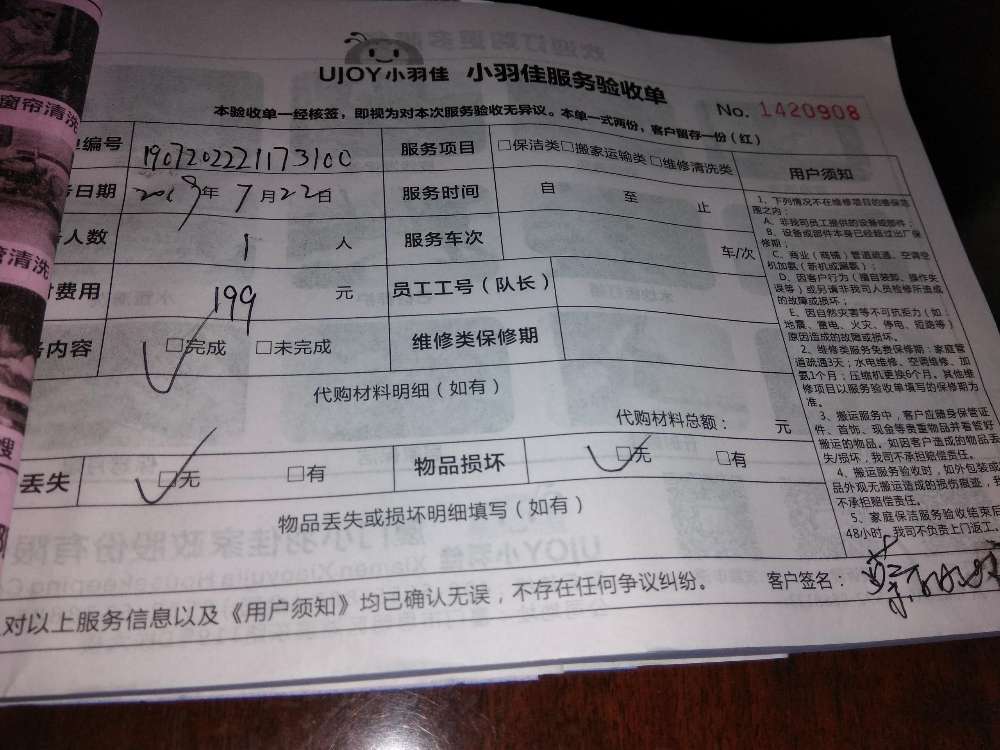 UJOY小羽佳 小羽佳服务验收单
No. 1420908
本验收单一经核签，即视为对本次服务验收无异议。本单一式两份，客户留存一份（红）
编号 1907202221173100 服务项目 □保洁类□搬家运输类□维修清洗类 用户须知
日期 2019年7月22日 服务时间 自 至 止
人数 1 人 服务车次 车/次
费用 199 元 员工工号（队长）
内容 □完成 □未完成 维修类保修期
代购材料明细（如有）
代购材料总额： 元
丢失 □无 □有 物品损坏 □无 □有
物品丢失或损坏明细填写（如有）
对以上服务信息以及《用户须知》均已确认无误，不存在任何争议纠纷。 客户签名：
1、下列情况不在维修项目的维保范
围之内：
A、非我司员工提供的设备或部件；
B、设备或部件本身已经超过出厂保
修期；
C、商业（商铺）管道疏通、空调空
机加氨（新机或漏氨）；
D、因客户行为（擅自装卸、操作失
误等）或另请非我司人员检修所造成
的故障或损坏；
E、因自然灾害等不可抗拒力（如：
地震、雷电、火灾、停电、短路等）
原因造成的故障或损坏。
2、维修类服务免费保修期：家庭管
道疏通3天；水电维修、空调维修、加
氨1个月；压缩机更换6个月。其他维
修项目以服务验收单填写的保修期为
准。
3、搬运服务中，客户应随身保管证
件、首饰、现金等贵重物品并看管好
搬运的物品。如因客户造成的物品丢
失/损坏，我司不承担赔偿责任。
4、搬运服务验收时，如外包装或
品外观无搬运造成的损伤痕迹，我
不承担赔偿责任。
5、家庭保洁服务验收结束后
48小时，我司不负责上门返工。
窗帘清洗
清洗